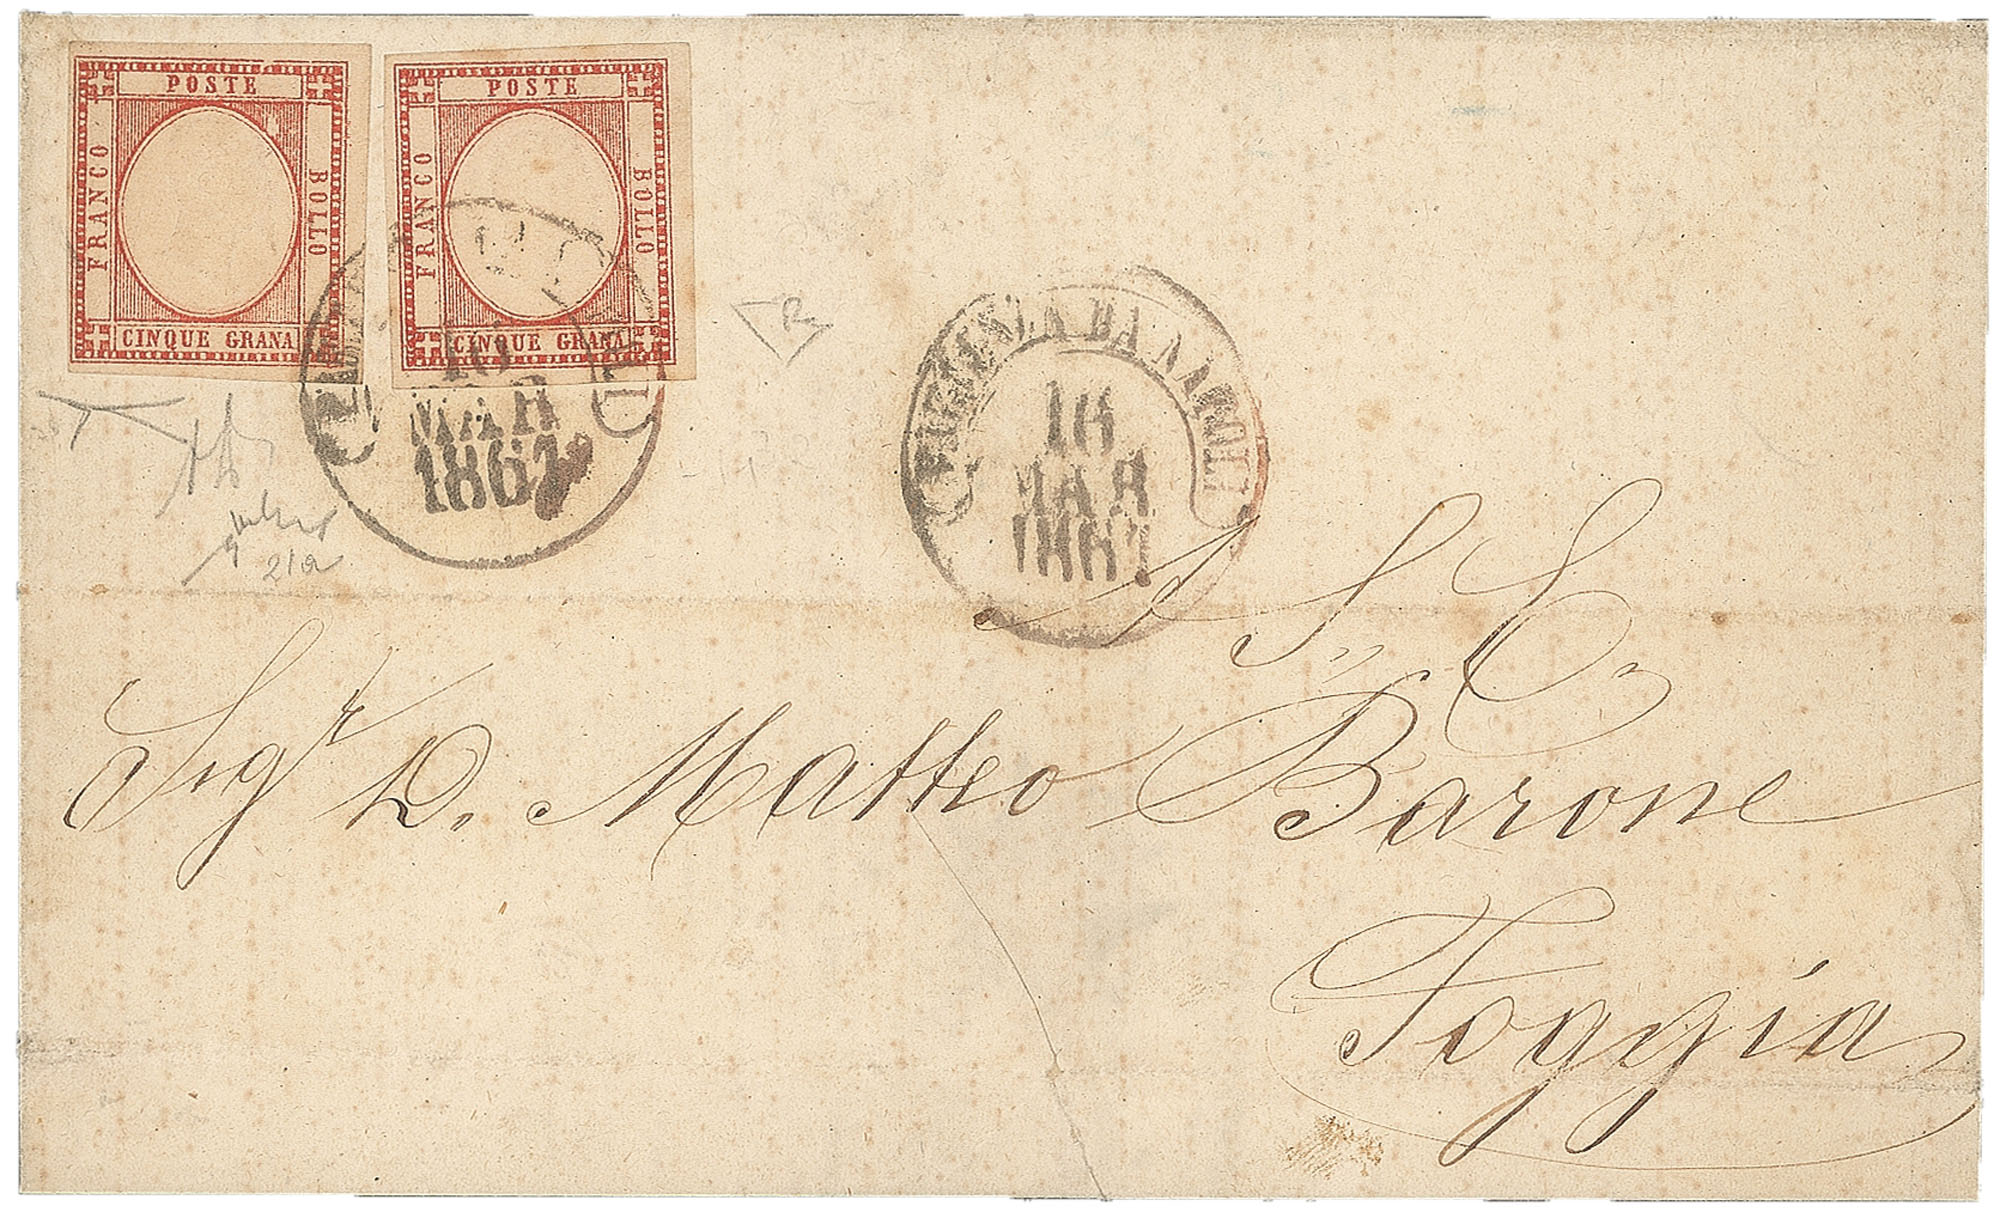 POSTE
FRANCO
BOLLO
CINQUE GRANA
POSTE
FRANCO
BOLLO
CINQUE GRANA
16
MAR
1861
BA NAPOLI
16
MAR
1861
S. E.
Sigr D. Matteo Barone
Foggia